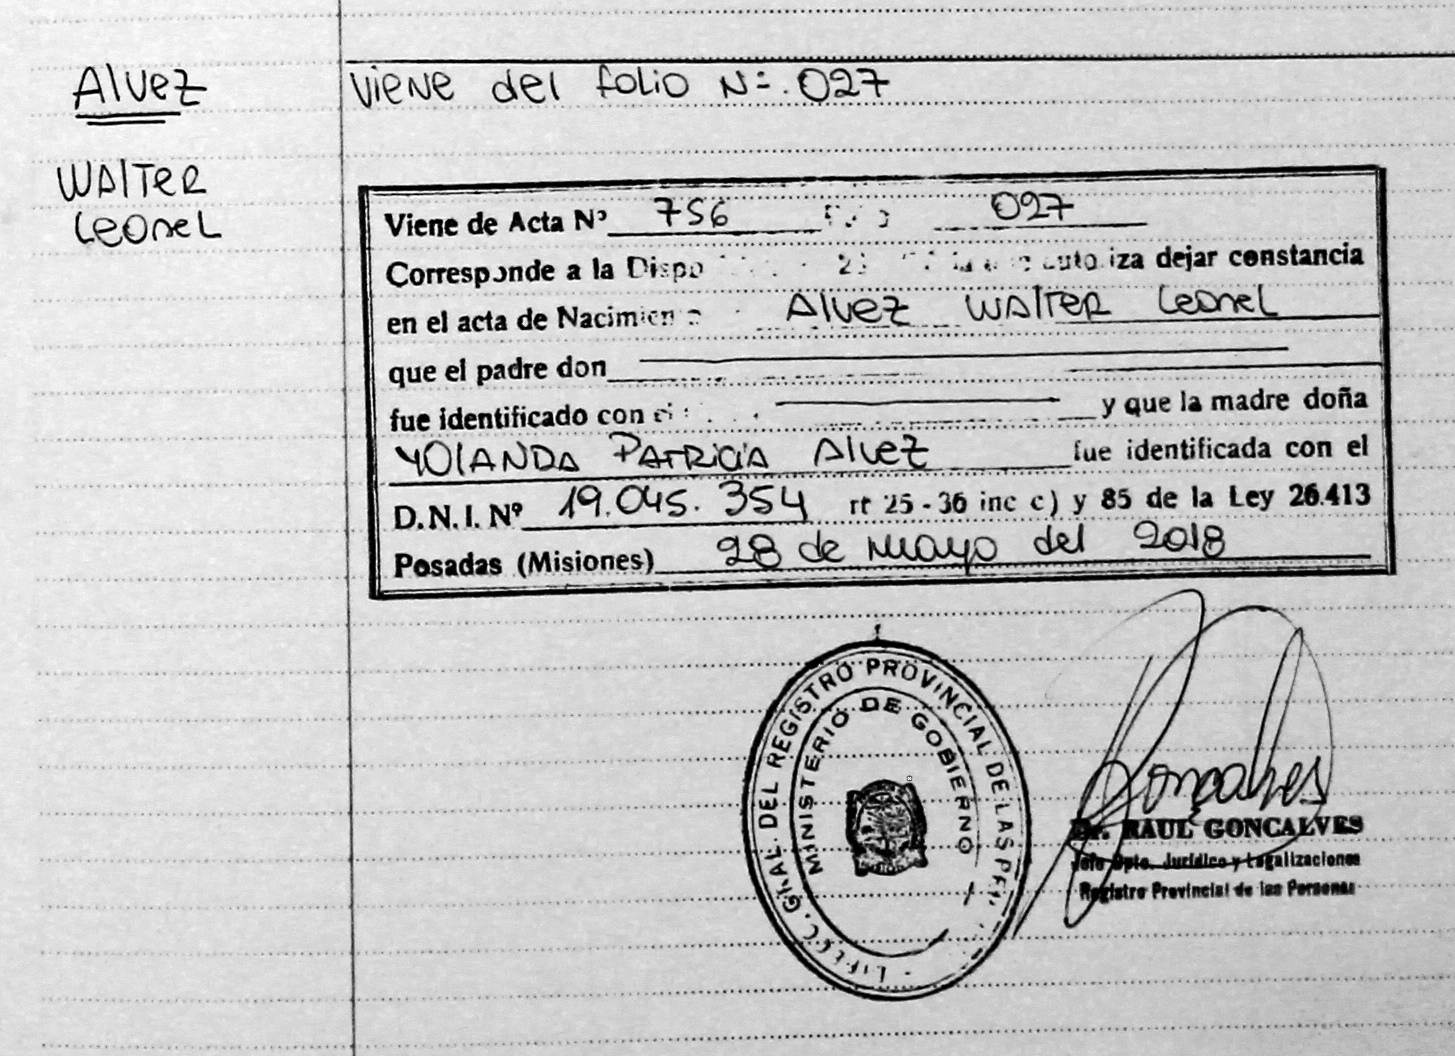 Alvez
Walter
Leonel
Viene del folio N=. 027
Viene de Acta Nº 756 027
Corresponde a la Dispo autoriza dejar constancia
en el acta de Nacimien Alvez Walter Leonel
que el padre don
fue identificado con el y que la madre doña
Yolanda Patricia Alvez fue identificada con el
D.N.I. Nº 19.045.354 rt 25 - 36 inc c) y 85 de la Ley 26.413
Posadas (Misiones) 28 de mayo del 2018
GRAL. DEL REGISTRO PROVINCIAL DE LAS
MINISTERIO DE GOBIERNO
Gonçalves
Dr. RAUL GONCALVES
Jefe Dpto. Jurídico y Legalizaciones
Registro Provincial de las Personas